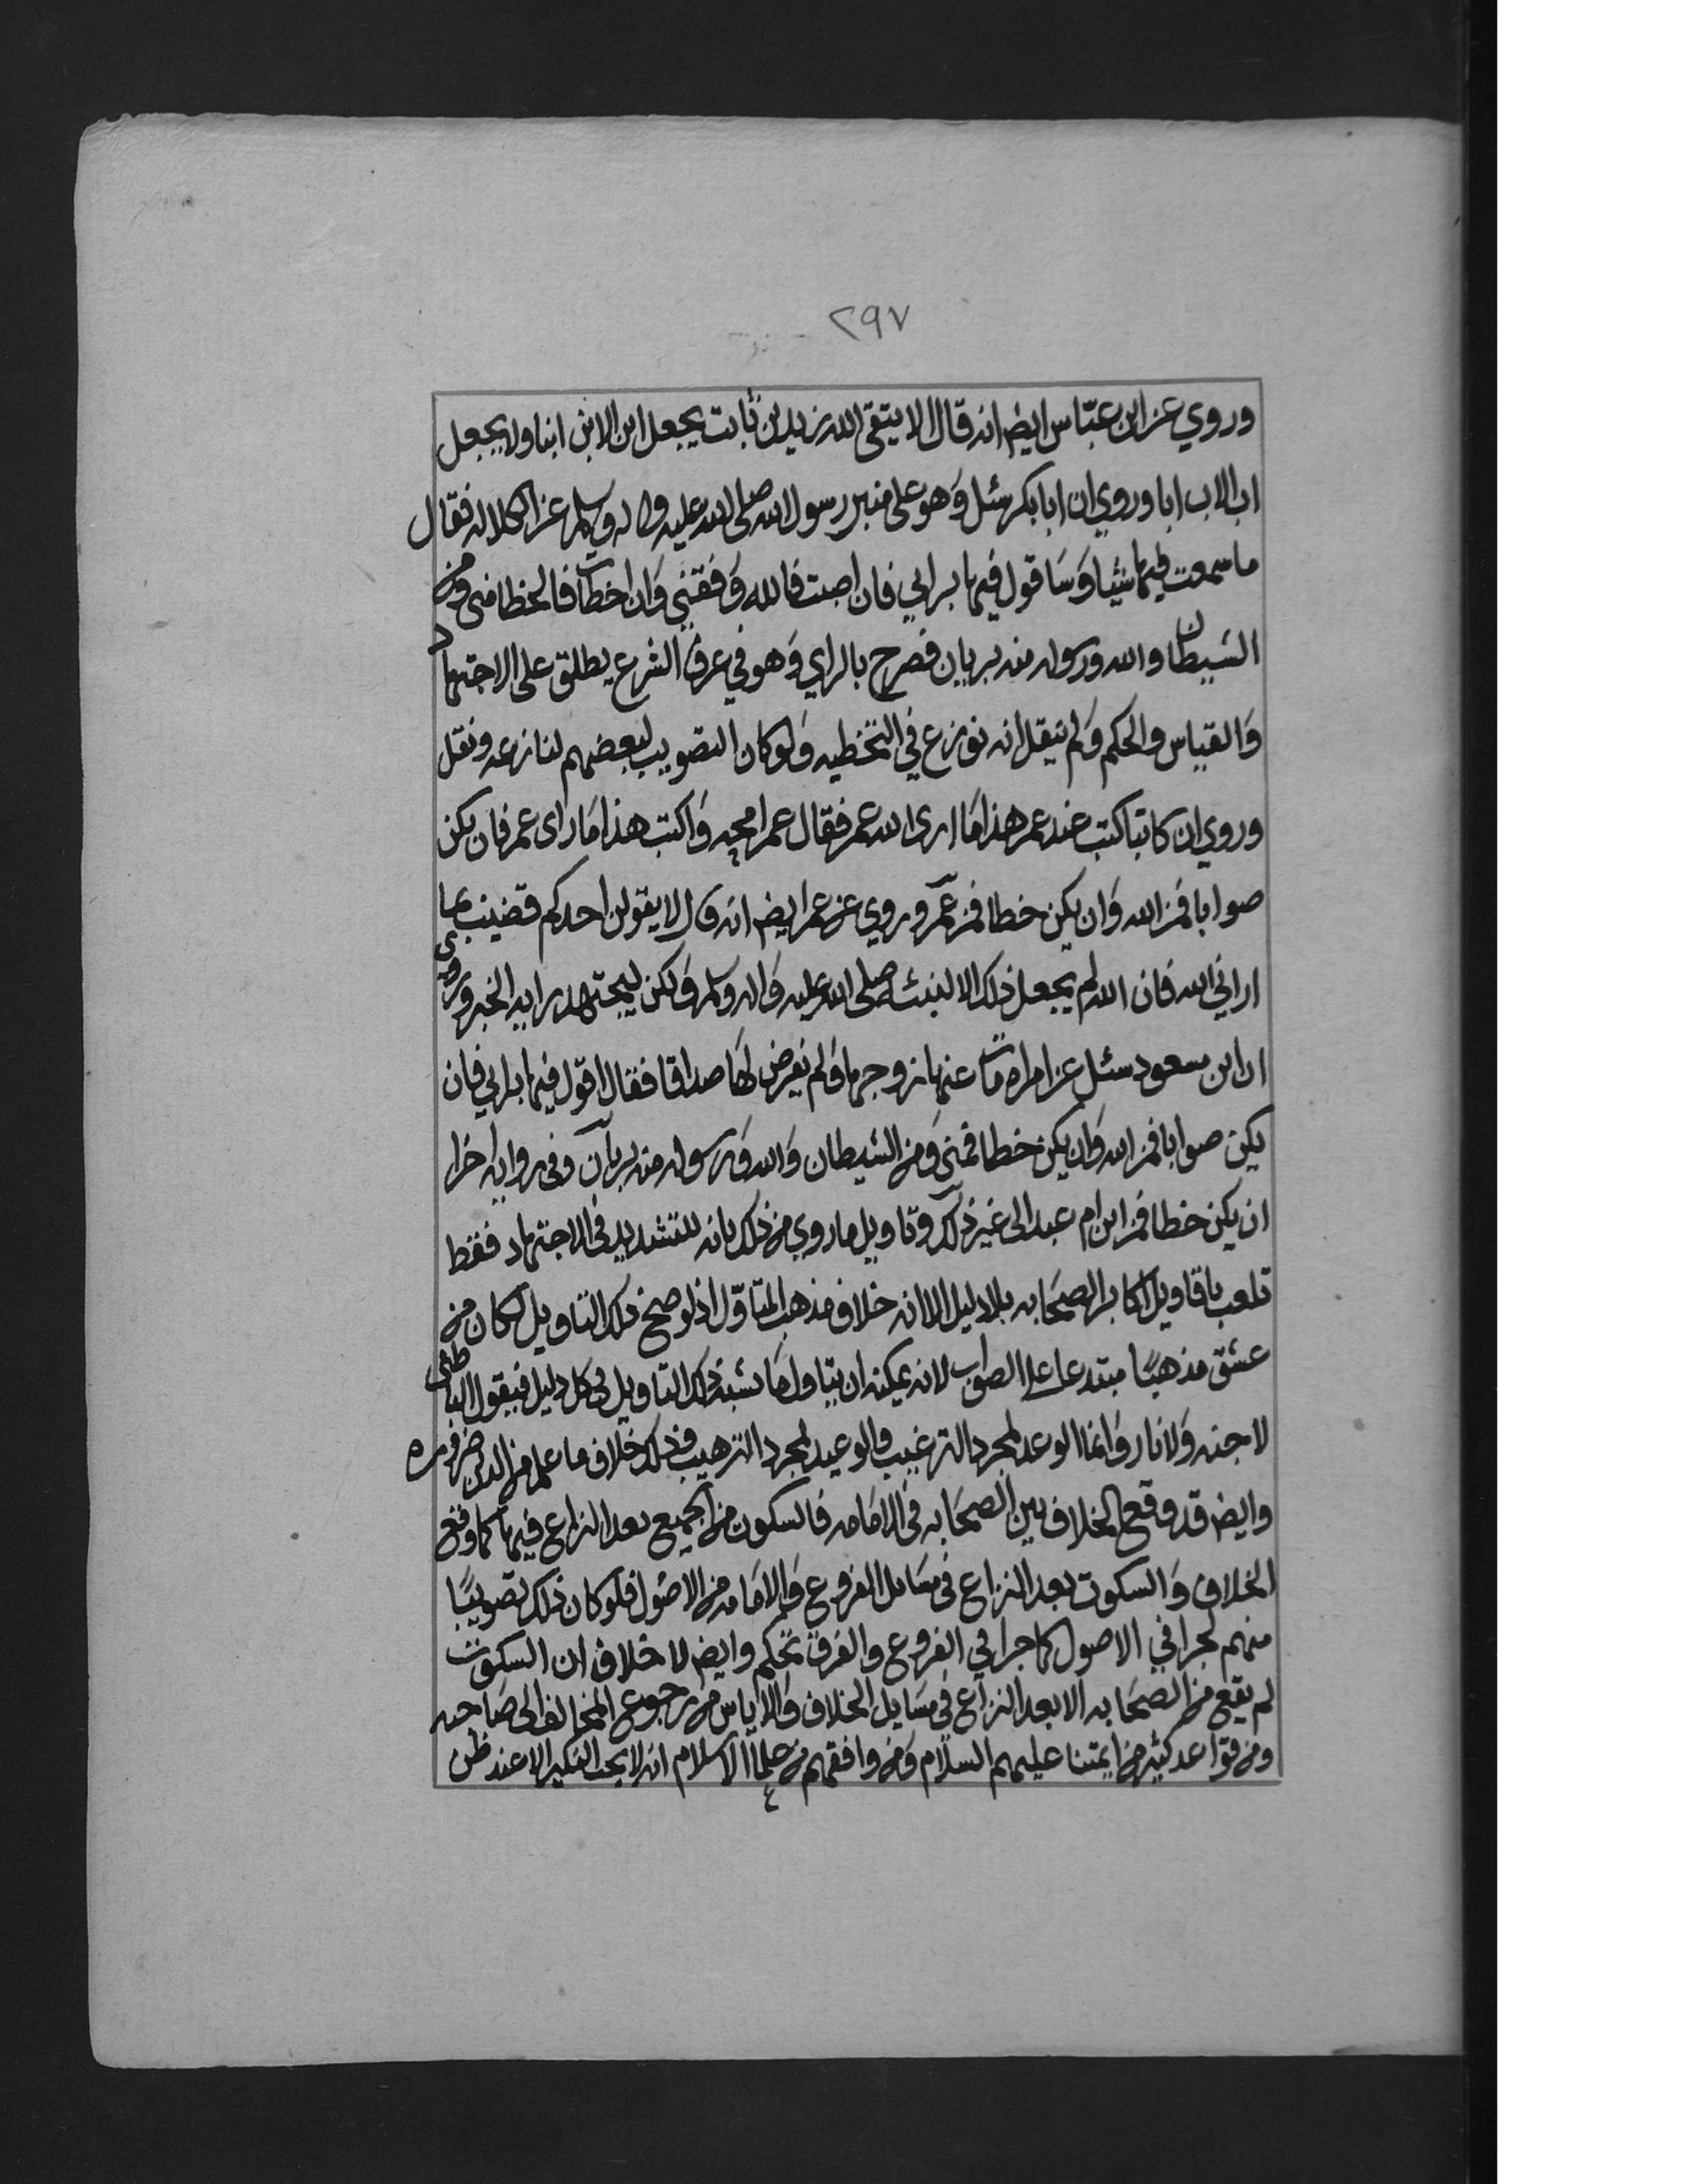 ٢٩٧
وروي عن ابن عبّاس ايض انه قال الا يتقى الله زيد بن ثابت يجعل ابن الابن ابنا ولا يجعل
اب الاب ابا وروي ان ابا بكر سئل وَهو على منبر رسول الله صلى الله عليه واله وسلم عن الكلاله فقال
ما سمعت فيها شيا وَسَاقول فيها برايي فان اصبت فالله وَفقني وَان اخطات فالخطا منى ومن
الشيطان والله ورسوله منه بريان فصرح بالراي وَهو في عرف الشرع يطلق على الاجتهاد
وَالقياس والحكم وَلم ينقل انه نوزع في التخطيه وَلو كان التصويب لبعضهم لنازعه ونقل
وروي ان كاتبا كتب عند عمر هذا مَا ارى الله عمر فقال عمر امحه وَاكتب هذا مَا راى عمر فان يكن
صوابا فمن الله وَان يكن خطا فمن عمر وروي عن عمر ايض انه قال لا يقولن احدكم قضيت بما
اراني الله فان الله لم يجعل ذلك الا لنبيه صلى الله عليه وَاله وسلم وَلكن ليجتهد رايه الخبر وروى
ان ابن مسعود سئل عن امراه مات عنها زوجها وَلم يفرض لهَا صداقا فقال اقول فيها برايي فان
يكن صوابا فمن الله وَان يكن خطا فمنى وَمن الشيطان وَالله وَرسوله منه بريان وفى روايه اخرا
ان يكن خطا فمن ابن ام عبد الى غير ذلك وتاويل ما روي من ذلك بانه للتشديد فى الاجتهاد فقط
تلعب باقاويل اكابر الصحَابه بلا دليل الا انه خلاف مذهب المتاوّل اذ لو صح ذلك التاويل لكان من
عشق مذهبًا مبتدعا على الصواب لانه يمكنه ان يتاول مَا يشبه ذلك التاويل فى كل دليل فيقول الباطنى
لا جنه وَلا نار وَانما الوعد لمجرد الترغيب والوعيد لمجرد الترهيب وذلك خلاف ما علم من الدين ضروره
وايض قد وقع الخلاف بين الصحَابه فى الامَامه فالسكون من الجميع بعد النزاع فيها كما وقع
الخلاف وَالسكوت بعد النزاع فى مسَايل الفروع وَالامَامه من الاصُول فلو كان ذلك تصويبًا
منهم لجرا في الاصول كما جرا في الفروع والفرق تحكم وايض لا خلاف ان السكوت
لم يقع من الصحَابه الا بعد النزاع في مسَايل الخلاف وَالاياس من رجوع المخالف الى صَاحبه
ومن قواعد كثير من ايمتنا عليهم السلام وَمن وافقهم من علما الاسلام انه لا يجب النكير الا عند ظن